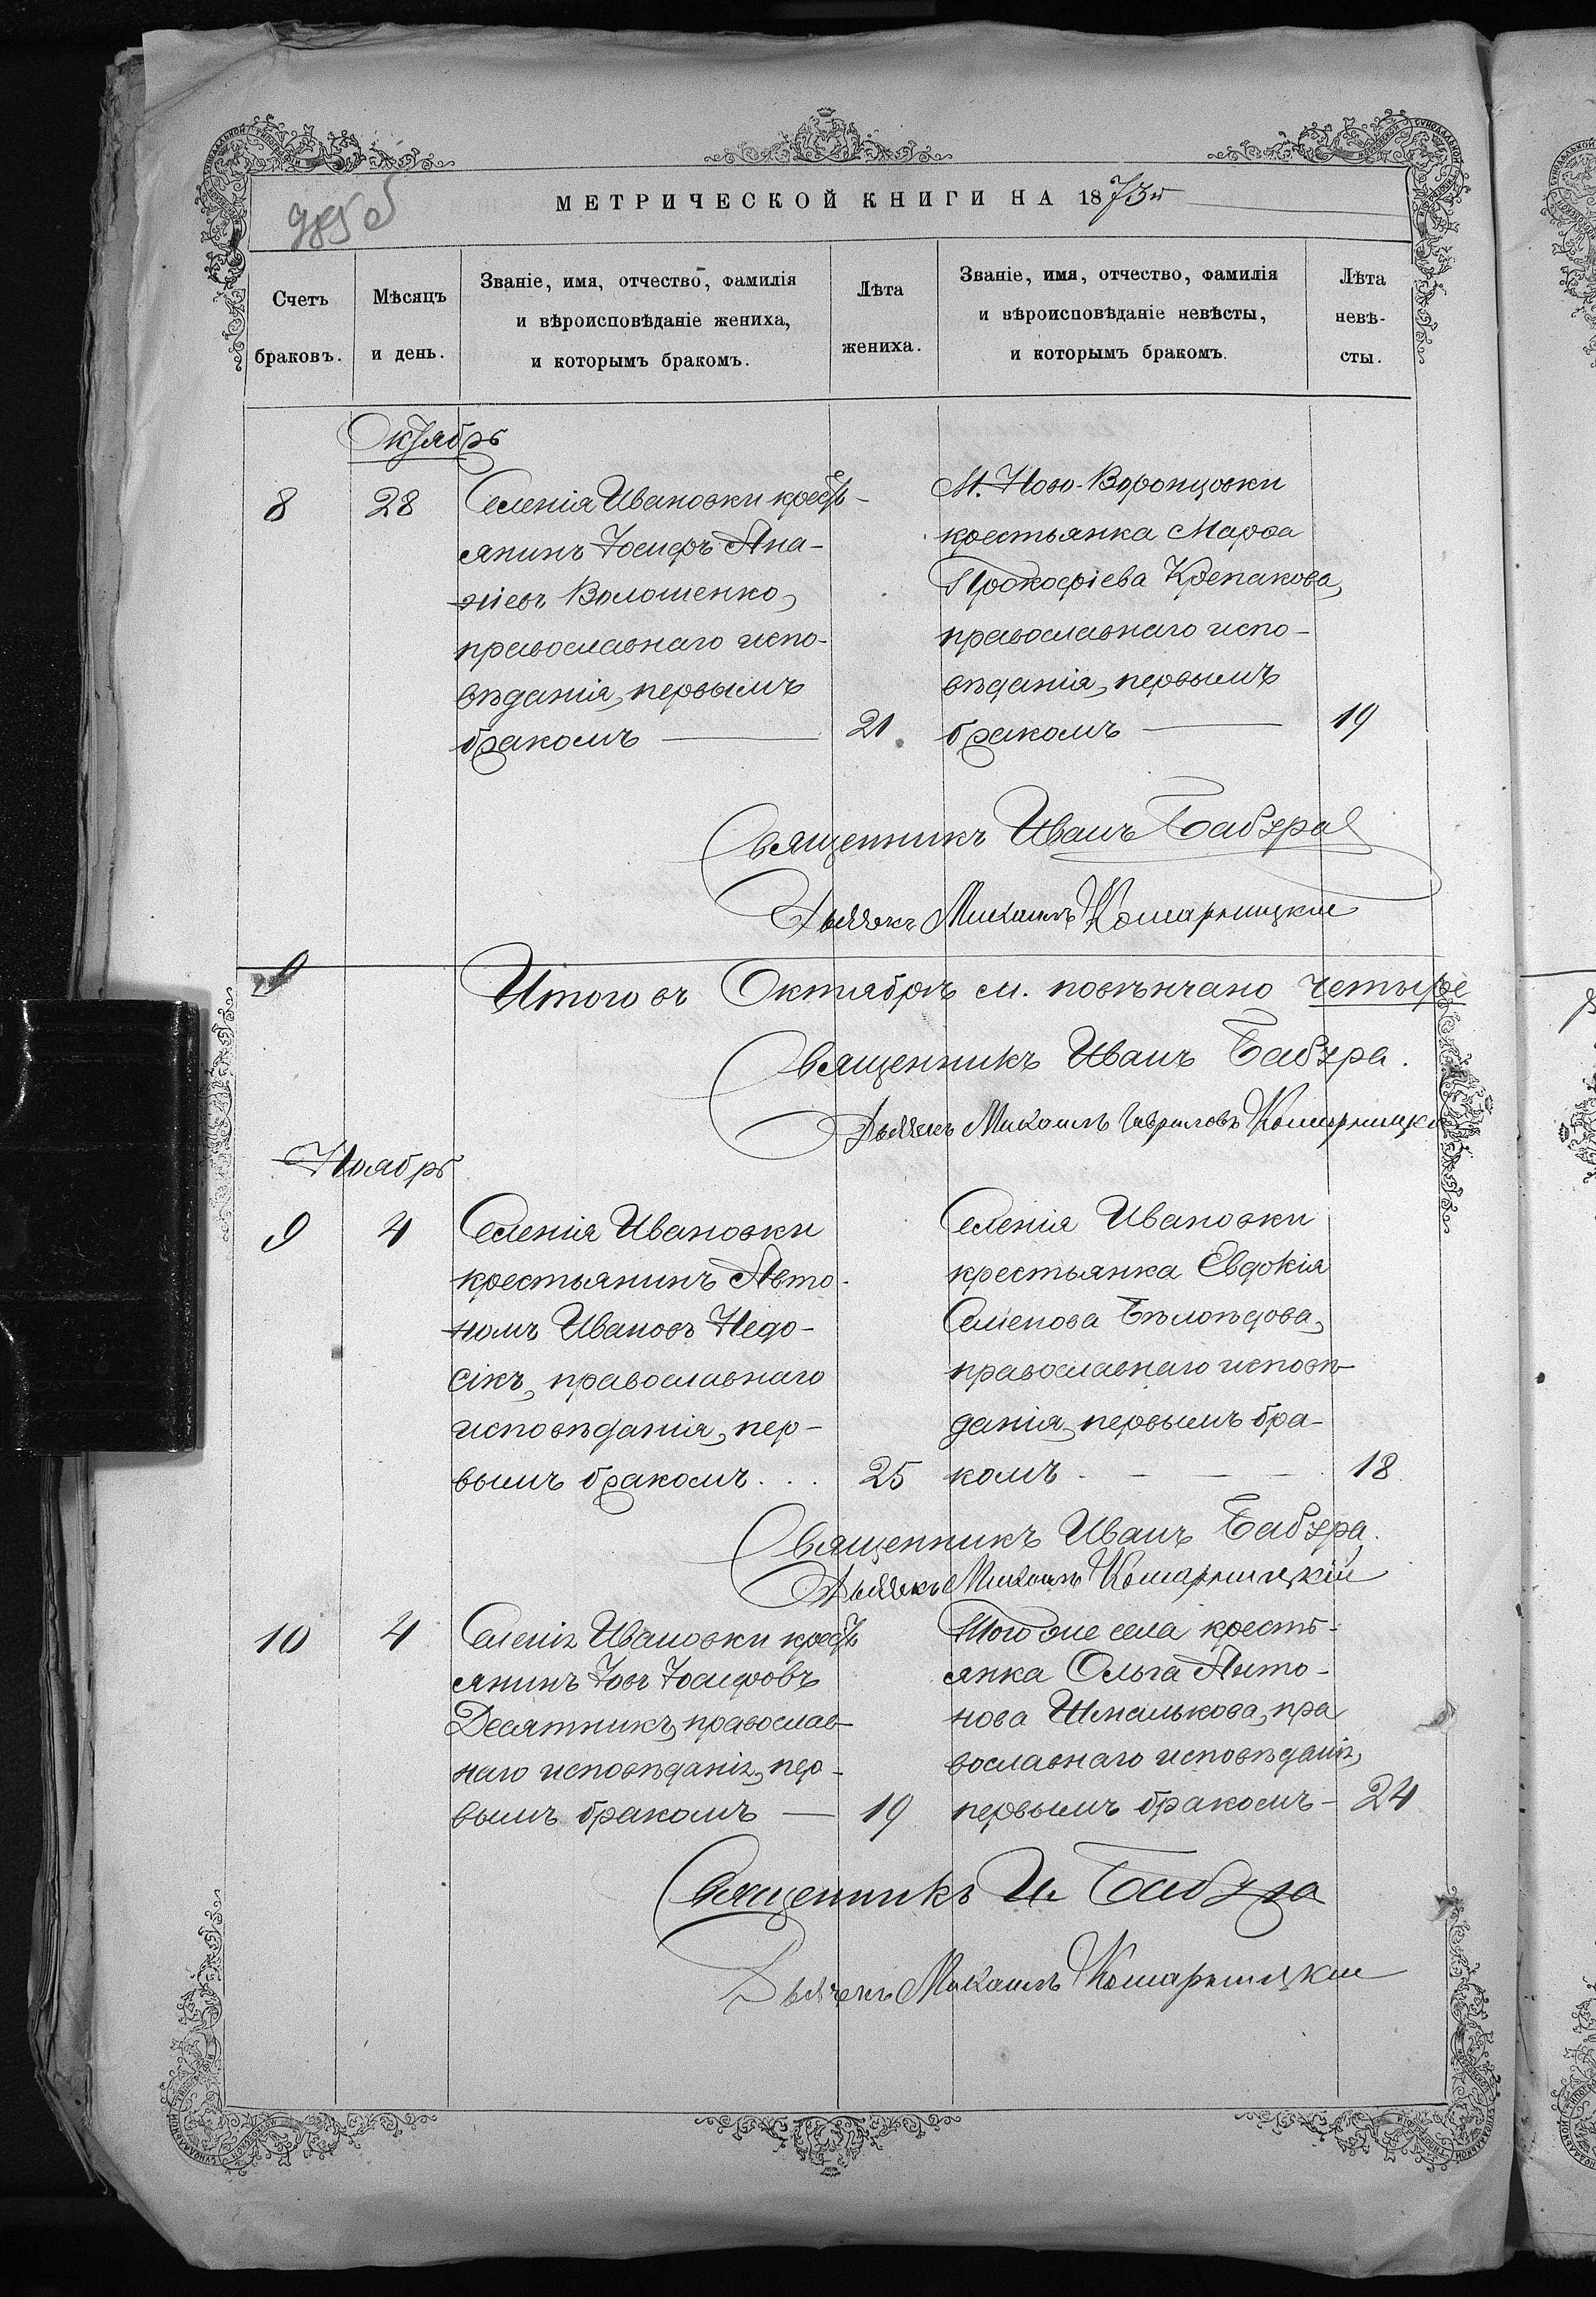 985 об
МЕТРИЧЕСКОЙ КНИГИ НА 1873й
Счетъ браковъ.
Мѣсяцъ и день.
Званіе, имя, отчество, фамилія
и вѣроисповѣданіе жениха,
и которымъ бракомъ.
Лѣта жениха.
Званіе, имя, отчество, фамилія
и вѣроисповѣданіе невѣсты,
и которымъ бракомъ.
Лѣта невѣ-
сты.
Октябрь
8
28
Селенія Ивановки кресть-
янинъ Іосифъ Ана-
ніевъ Волошенко,
православнаго испо-
вѣданія, первымъ
бракомъ
21
М. Ново-Воронцовки
крестьянка Марѳа
Прокофіева Крепакова,
православнаго испо-
вѣданія, первымъ
бракомъ
19
Священникъ Иванъ Бабура
Дьячекъ Михаилъ Комарницкій
Итого въ Октябрѣ м. повѣнчано четыре
Священникъ Иванъ Бабура.
Дьячекъ Михаилъ Гавриловъ Комарницкій
Ноябрь
9
4
Селенія Ивановки
крестьянинъ Авто-
номъ Ивановъ Недо-
сікъ, православнаго
исповѣданія, пер-
вымъ бракомъ . . .
25
Селенія Ивановки
крестьянка Евдокія
Семенова Бѣлоѣдова,
православнаго исповѣ-
данія, первымъ бра-
комъ
18
Священникъ Иванъ Бабура.
Дьячекъ Михаилъ Комарницкій
10
4
Селенія Ивановки кресть
янинъ Іовъ Іосифовъ
Десятникъ, православ-
наго исповѣданія, пер-
вымъ бракомъ
19
Того же села кресть-
янка Ольга Анто-
нова Шмалькова, пра
вославнаго исповѣданія,
первымъ бракомъ
24
Священникъ И. Бабура
Дьячекъ Михаилъ Комарницкій